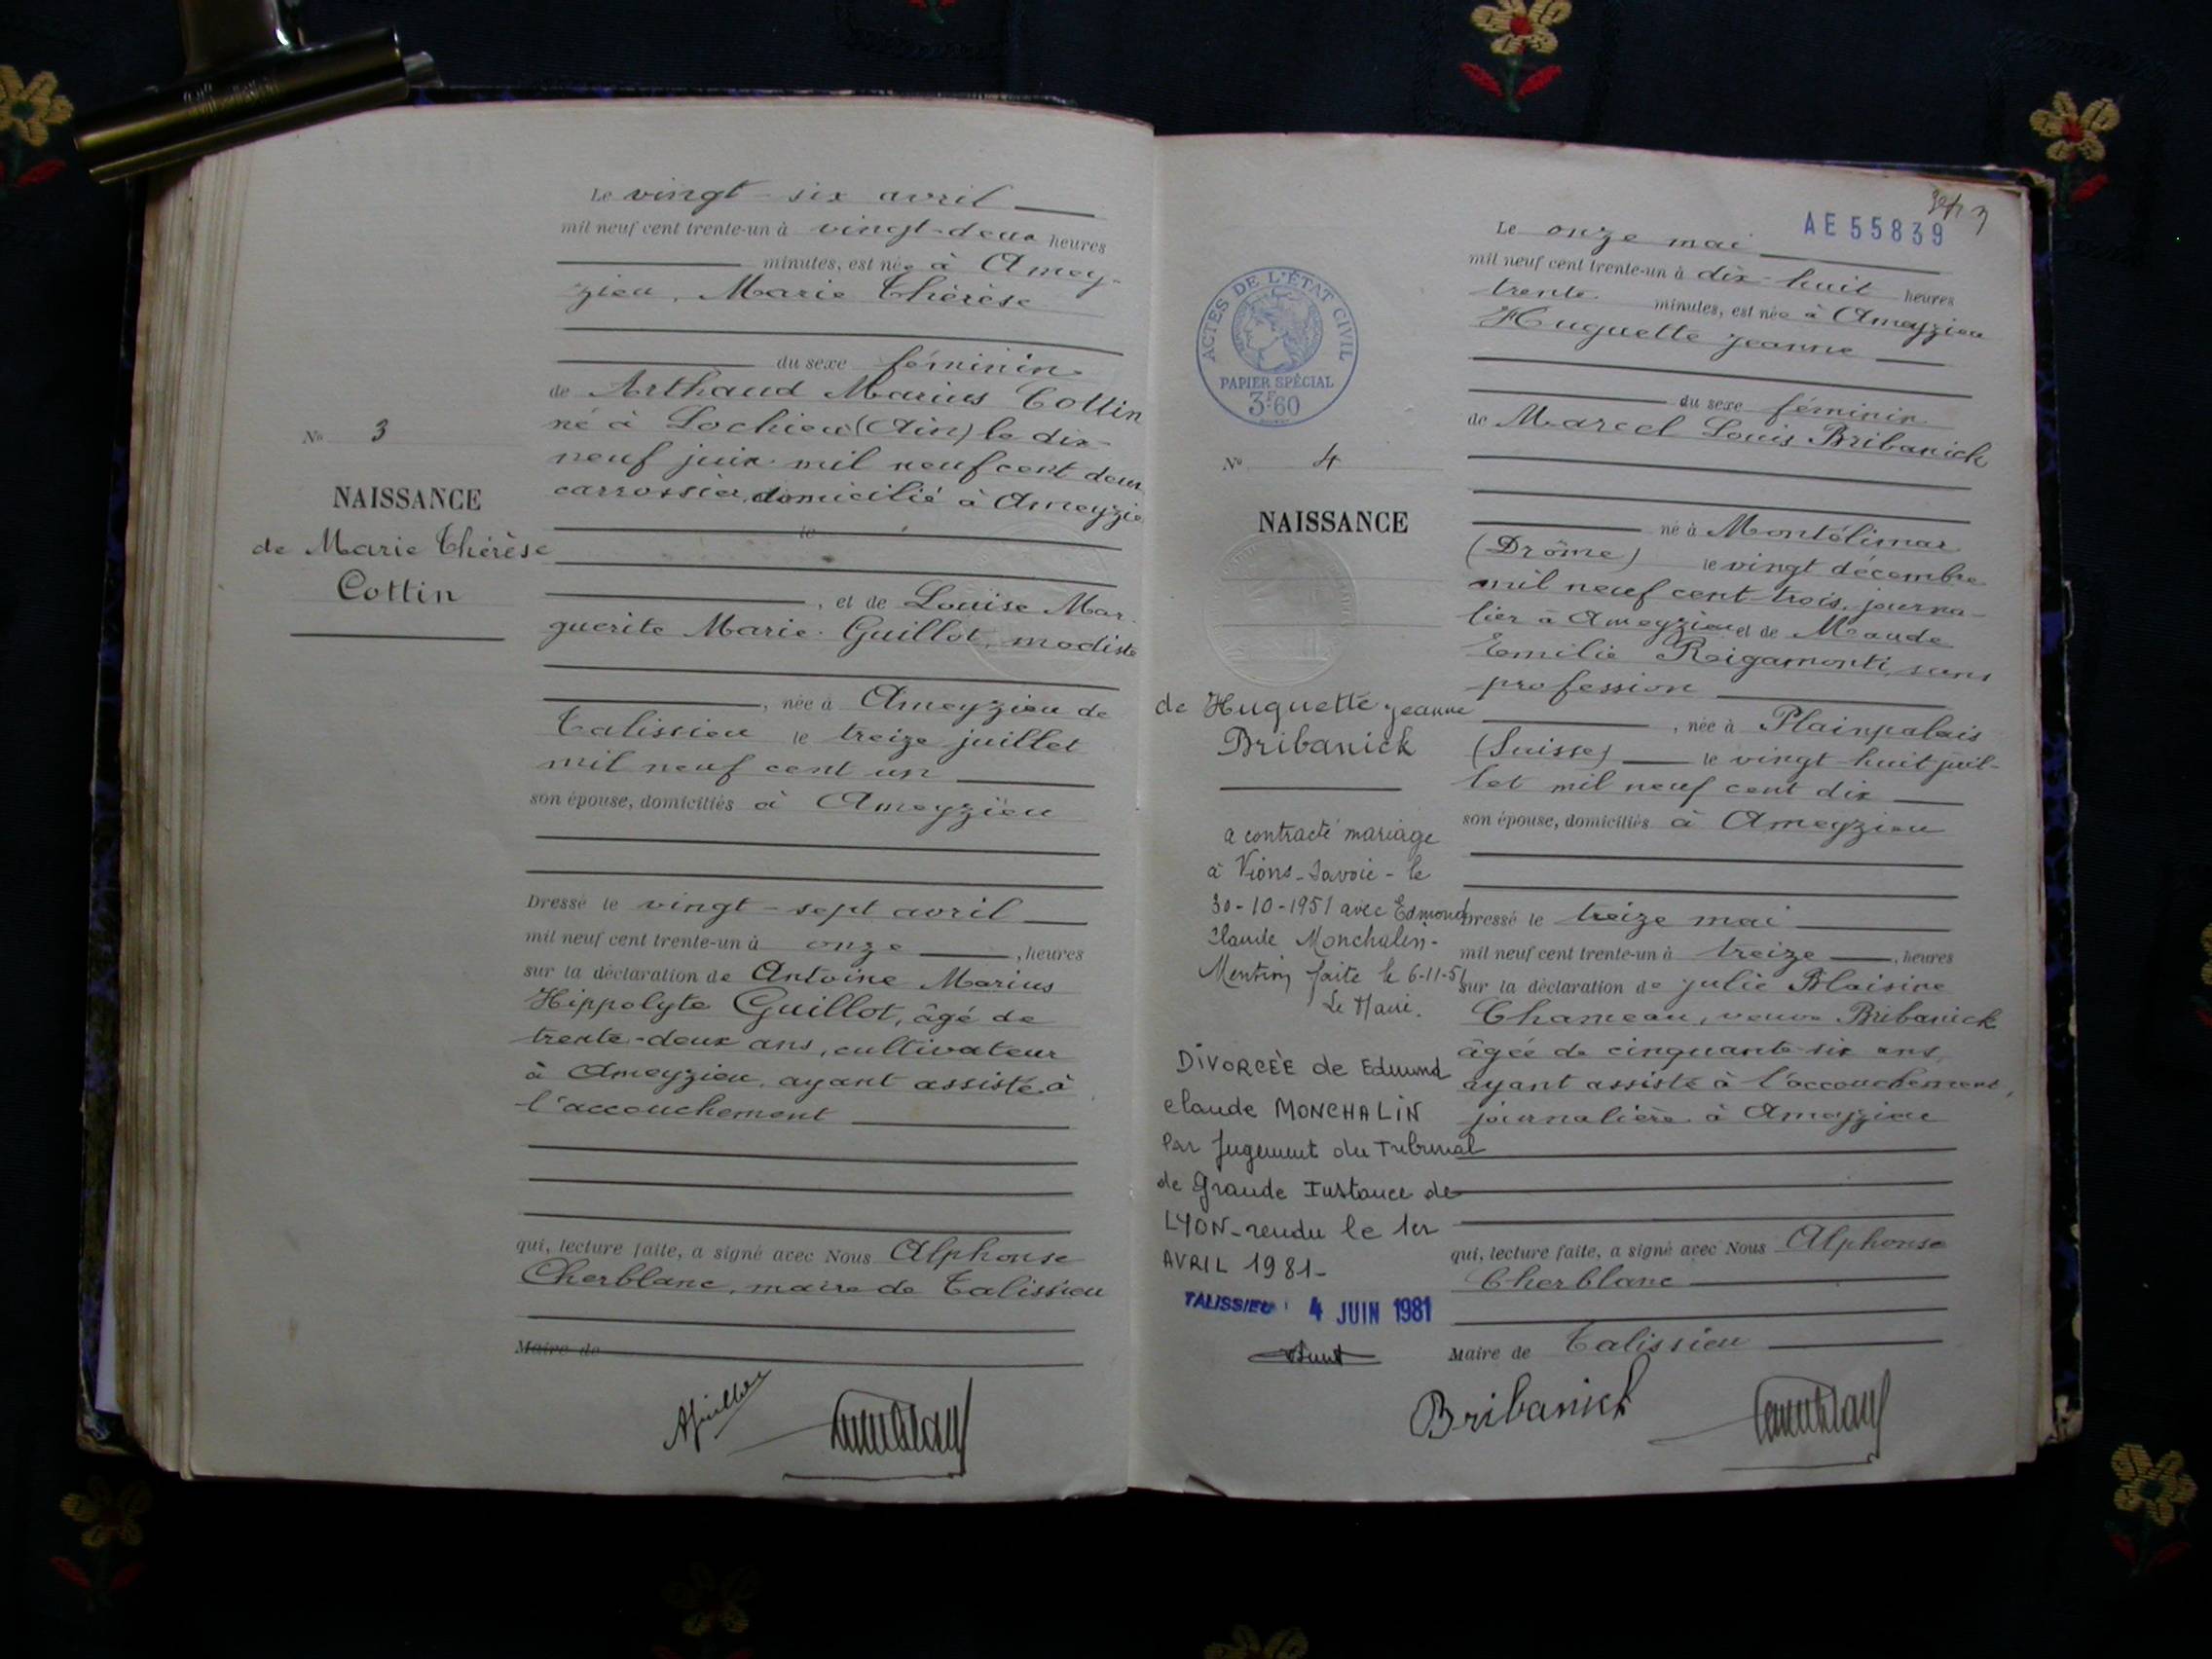 Le vingt-six avril
mil neuf cent trente-un à vingt-deux heures
minutes, est née à Amey-
zieu, Marie Thérèse
du sexe féminin
de Arthaud Marius Cottin
né à Lochieu (Ain) le dix-
neuf juin mil neuf cent deux
carrossier, domicilié à Ameyzieu
le
N° 3
NAISSANCE
de Marie Thérèse
Cottin
, et de Louise Mar-
guerite Marie Guillot, modiste
, née à Ameyzieu de
Talissieu le treize juillet
mil neuf cent un
son épouse, domiciliés à Ameyzieu
Dressé le vingt-sept avril
mil neuf cent trente-un à onze , heures
sur la déclaration de Antoine Marius
Hippolyte Guillot, âgé de
trente-deux ans, cultivateur
à Ameyzieu, ayant assisté à
l'accouchement
qui, lecture faite, a signé avec Nous Alphonse
Cherblanc, maire de Talissieu
Maire de
AGuillot
AE 55839
ACTES DE L'ÉTAT CIVIL
PAPIER SPÉCIAL
3F60
N° 4
NAISSANCE
de Huguette Jeanne
Bribanick
a contracté mariage
à Vions-Savoie - le
30-10-1951 avec Edmond
Claude Monchalin-
Mention faite le 6-11-51
Le Maire.
DIVORCÉE de Edmond
Claude MONCHALIN
Par Jugement du Tribunal
de Grande Instance de
LYON-rendu le 1er
AVRIL 1981-
TALISSIEU 4 JUIN 1981
Le onze mai
mil neuf cent trente-un à dix-huit heures
trente minutes, est née à Ameyzieu
Huguette Jeanne
du sexe féminin
de Marcel Louis Bribanick
né à Montélimar
(Drôme) le vingt décembre
mil neuf cent trois, journa-
lier à Ameyzieu et de Maude
Emilie Roigamonti, sans
profession
, née à Plainpalais
(Suisse) le vingt-huit juil-
let mil neuf cent dix
son épouse, domiciliés à Ameyzieu
Dressé le treize mai
mil neuf cent trente-un à treize , heures
sur la déclaration de Julie Blaisine
Chameau, veuve Bribanick
âgée de cinquante-six ans,
ayant assisté à l'accouchement,
journalière à Ameyzieu
qui, lecture faite, a signé avec Nous Alphonse
Cherblanc
Maire de Talissieu
Bribanick